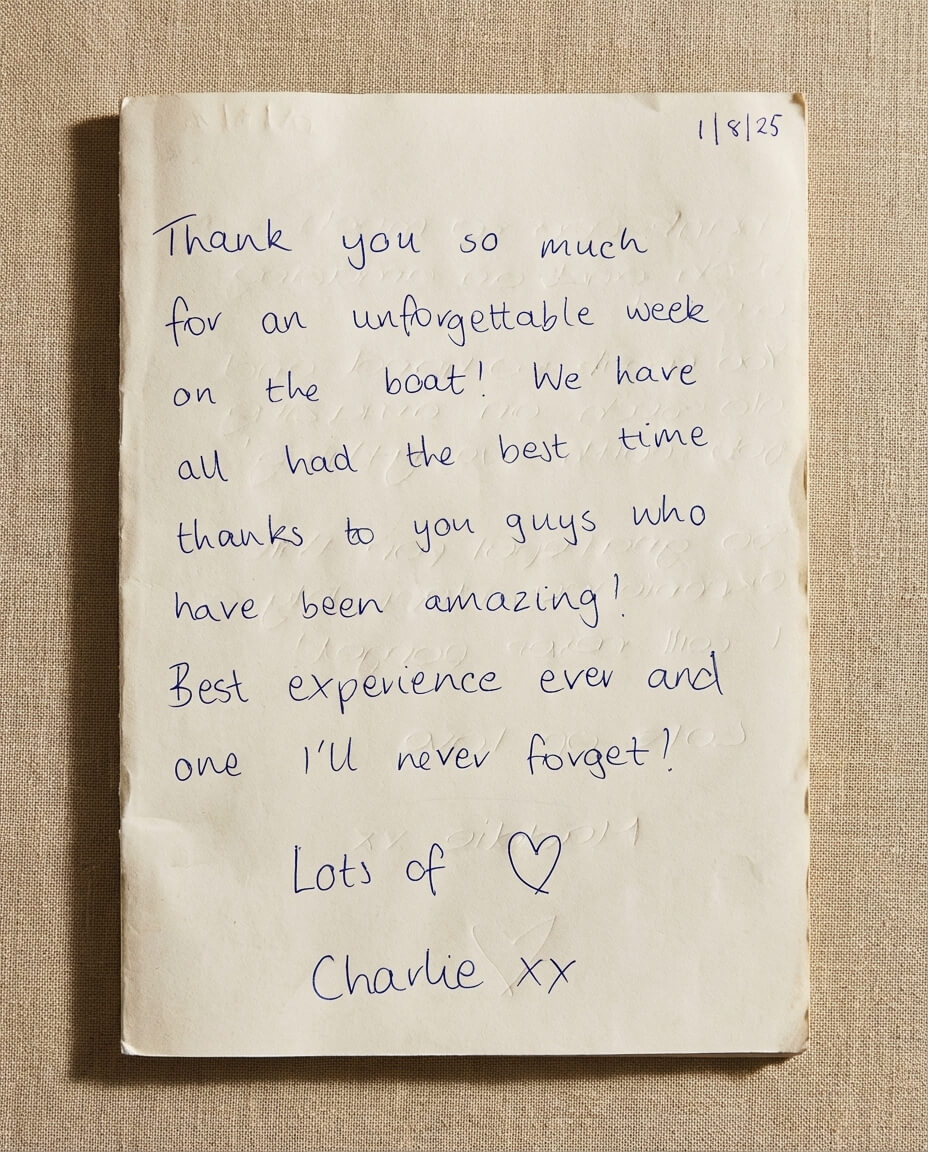 1/8/25
Thank you so much
for an unforgettable week
on the boat! We have
all had the best time
thanks to you guys who
have been amazing!
Best experience ever and
one I'll never forget!
Lots of ♡
Charlie xx